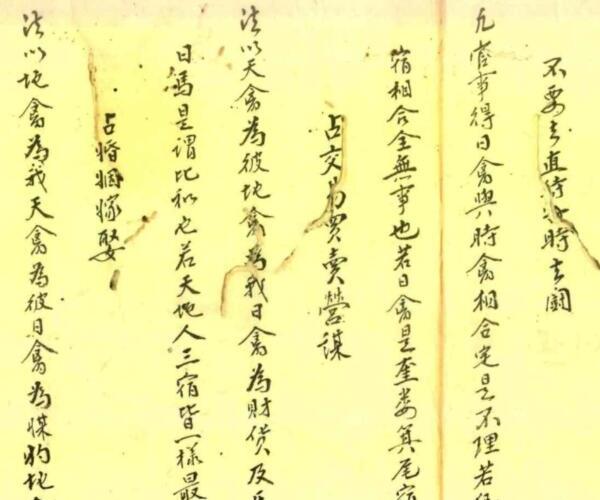 不要去直待 時去鬪
凡官事得日禽與時禽相合定是不理若
宿相合全無事也若日禽是奎婁箕尾宿
占交易買賣營謀
法以天禽為彼地禽為我日禽為財貨及
日馬是謂比和也若天地人三宿皆一樣最
占婚姻嫁娶
法以地禽為我天禽為彼日禽為媒妁地